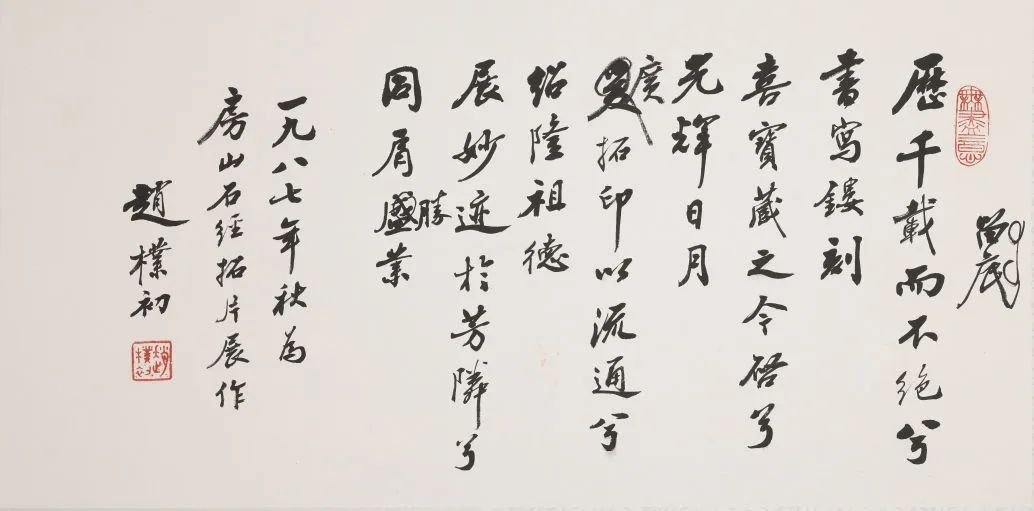 無盡意
留底
歷千載而不绝兮
書写鏤刻
喜寶藏之今啓兮
光輝日月
廣拓印以流通兮
绍隆祖德
展妙迹於芳隣兮
同肩勝業
一九八七年秋為
房山石經拓片展作
趙樸初
趙樸初